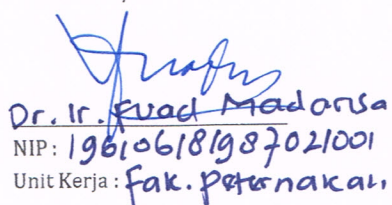 Dr. Ir. Fuad Madarisa
NIP : 196106181987021001
Unit Kerja : Fak. Peternakan